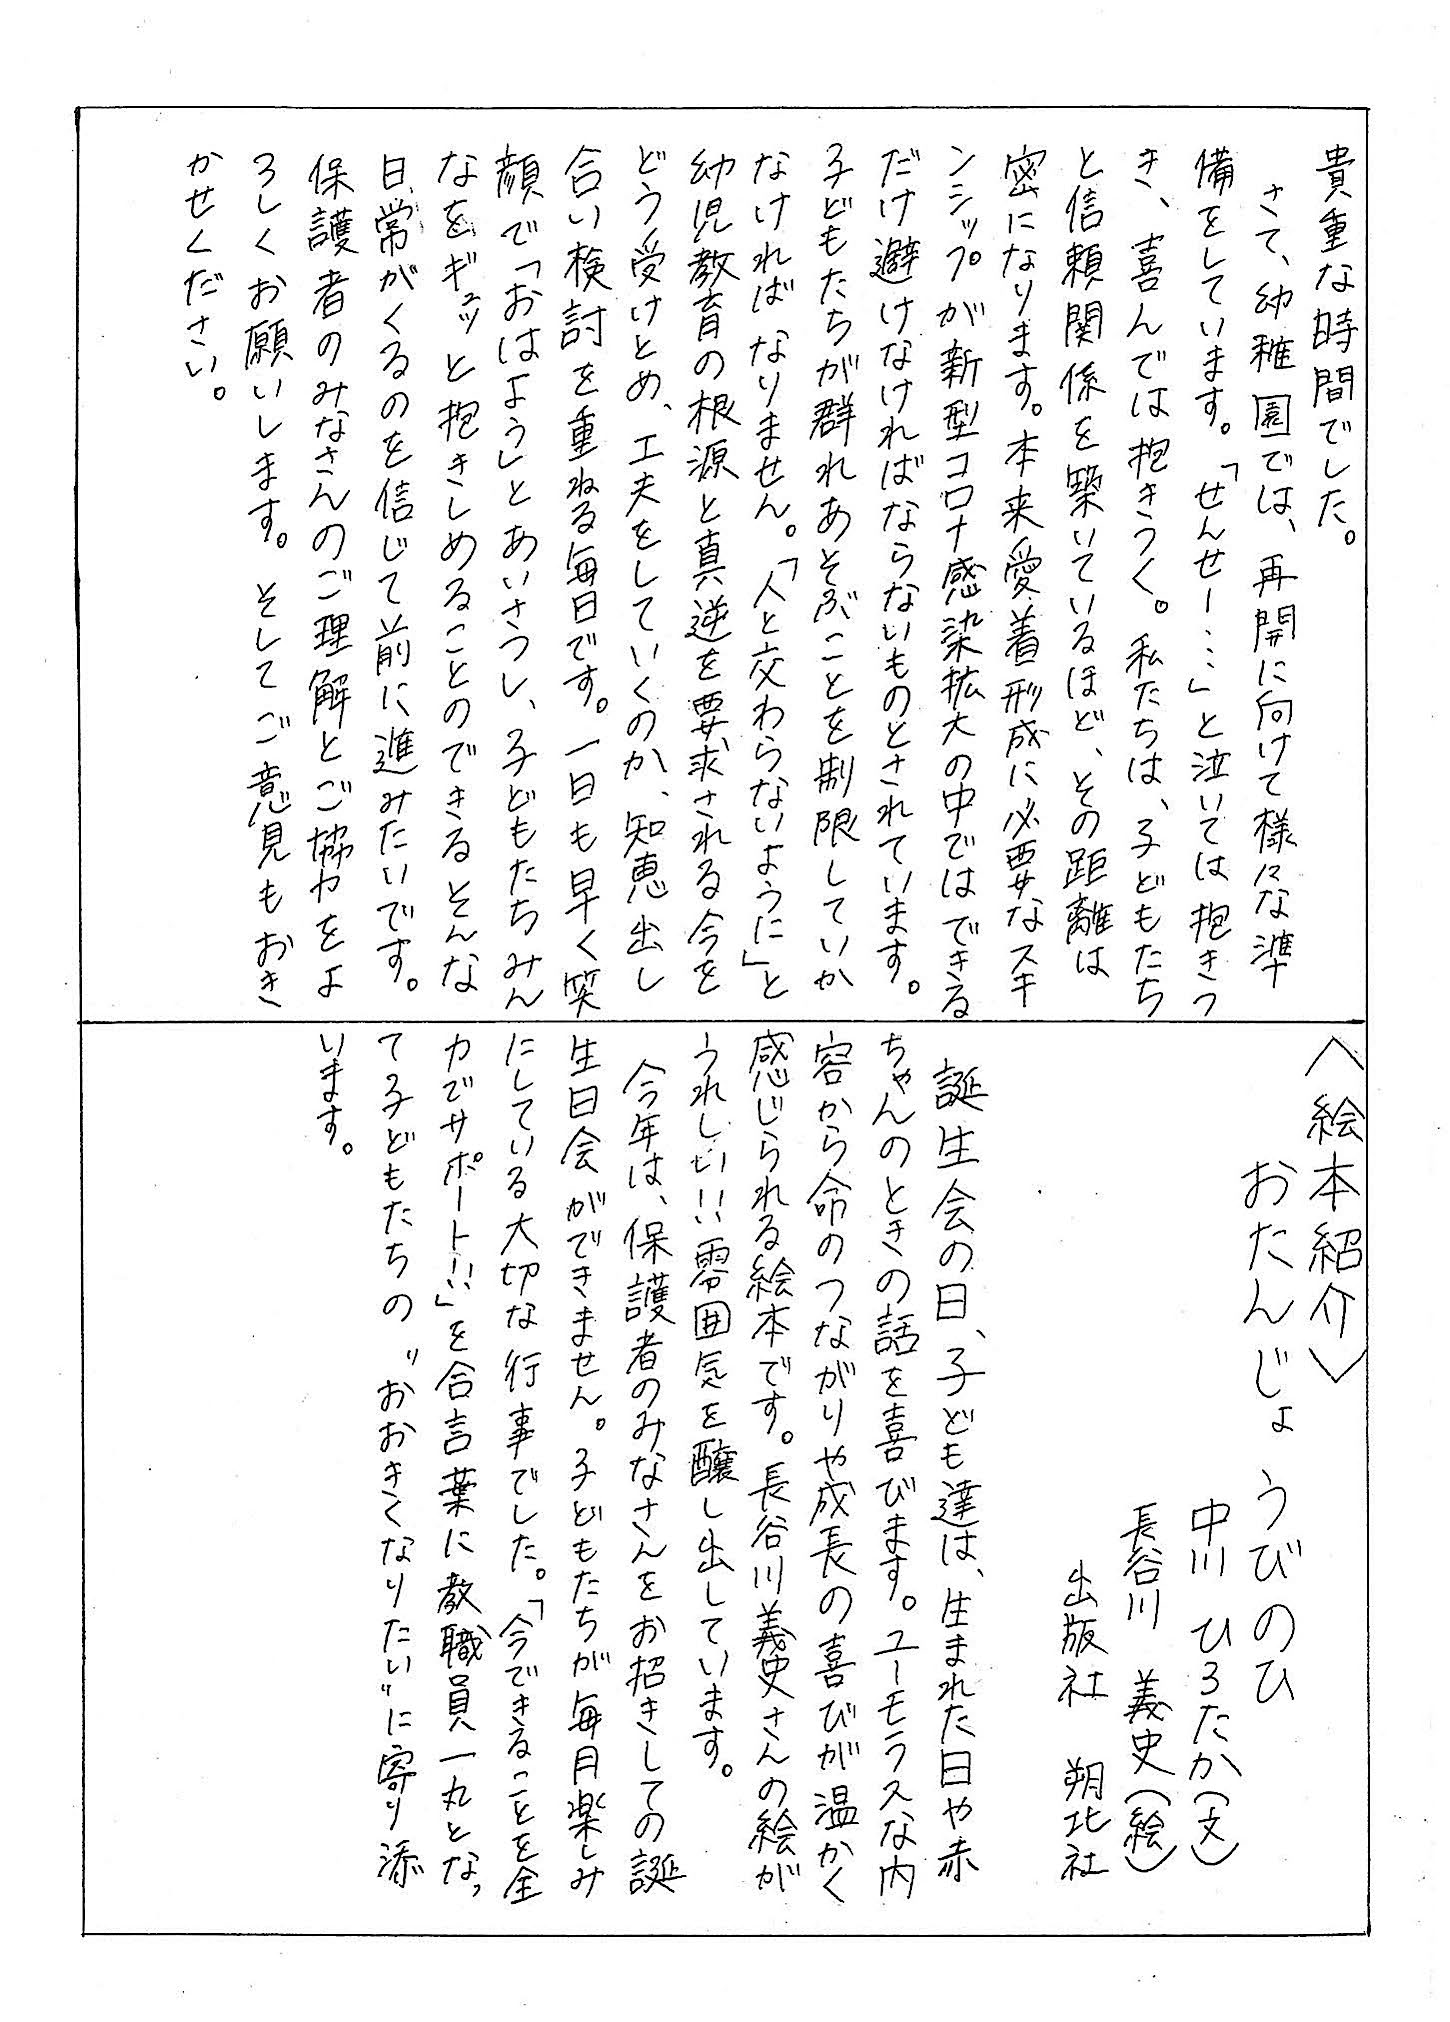 貴重な時間でした。
さて、幼稚園では、再開に向けて様々な準
備をしています。「せんせー…」と泣いては抱きつ
き、喜んでは抱きつく。私たちは、子どもたち
と信頼関係を築いているほど、その距離は
密になります。本来愛着形成に必要なスキ
ンシップが新型コロナ感染拡大の中ではできる
だけ避けなければならないものとされています。
子どもたちが群れあそぶことを制限していか
なければなりません。「人と交わらないように」と
幼児教育の根源と真逆を要求される今を
どう受けとめ、工夫をしていくのか、知恵出し
合い検討を重ねる毎日です。一日も早く笑
顔で「おはよう」とあいさつし、子どもたちみん
なをギュッと抱きしめることのできるそんな
日常がくるのを信じて前に進みたいです。
保護者のみなさんのご理解とご協力をよ
ろしくお願いします。そしてご意見もおき
かせください。
〈絵本紹介〉
おたんじょうびのひ
中川 ひろたか(文)
長谷川 義史(絵)
出版社 朔北社
誕生会の日、子ども達は、生まれた日や赤
ちゃんのときの話を喜びます。ユーモラスな内
容から命のつながりや成長の喜びが温かく
感じられる絵本です。長谷川義史さんの絵が
うれしい!!雰囲気を醸し出しています。
今年は、保護者のみなさんをお招きしての誕
生日会ができません。子どもたちが毎月楽しみ
にしている大切な行事でした。「今できることを全
力でサポート!!」を合言葉に教職員一丸となっ
て子どもたちの〝おおきくなりたい〟に寄り添
います。